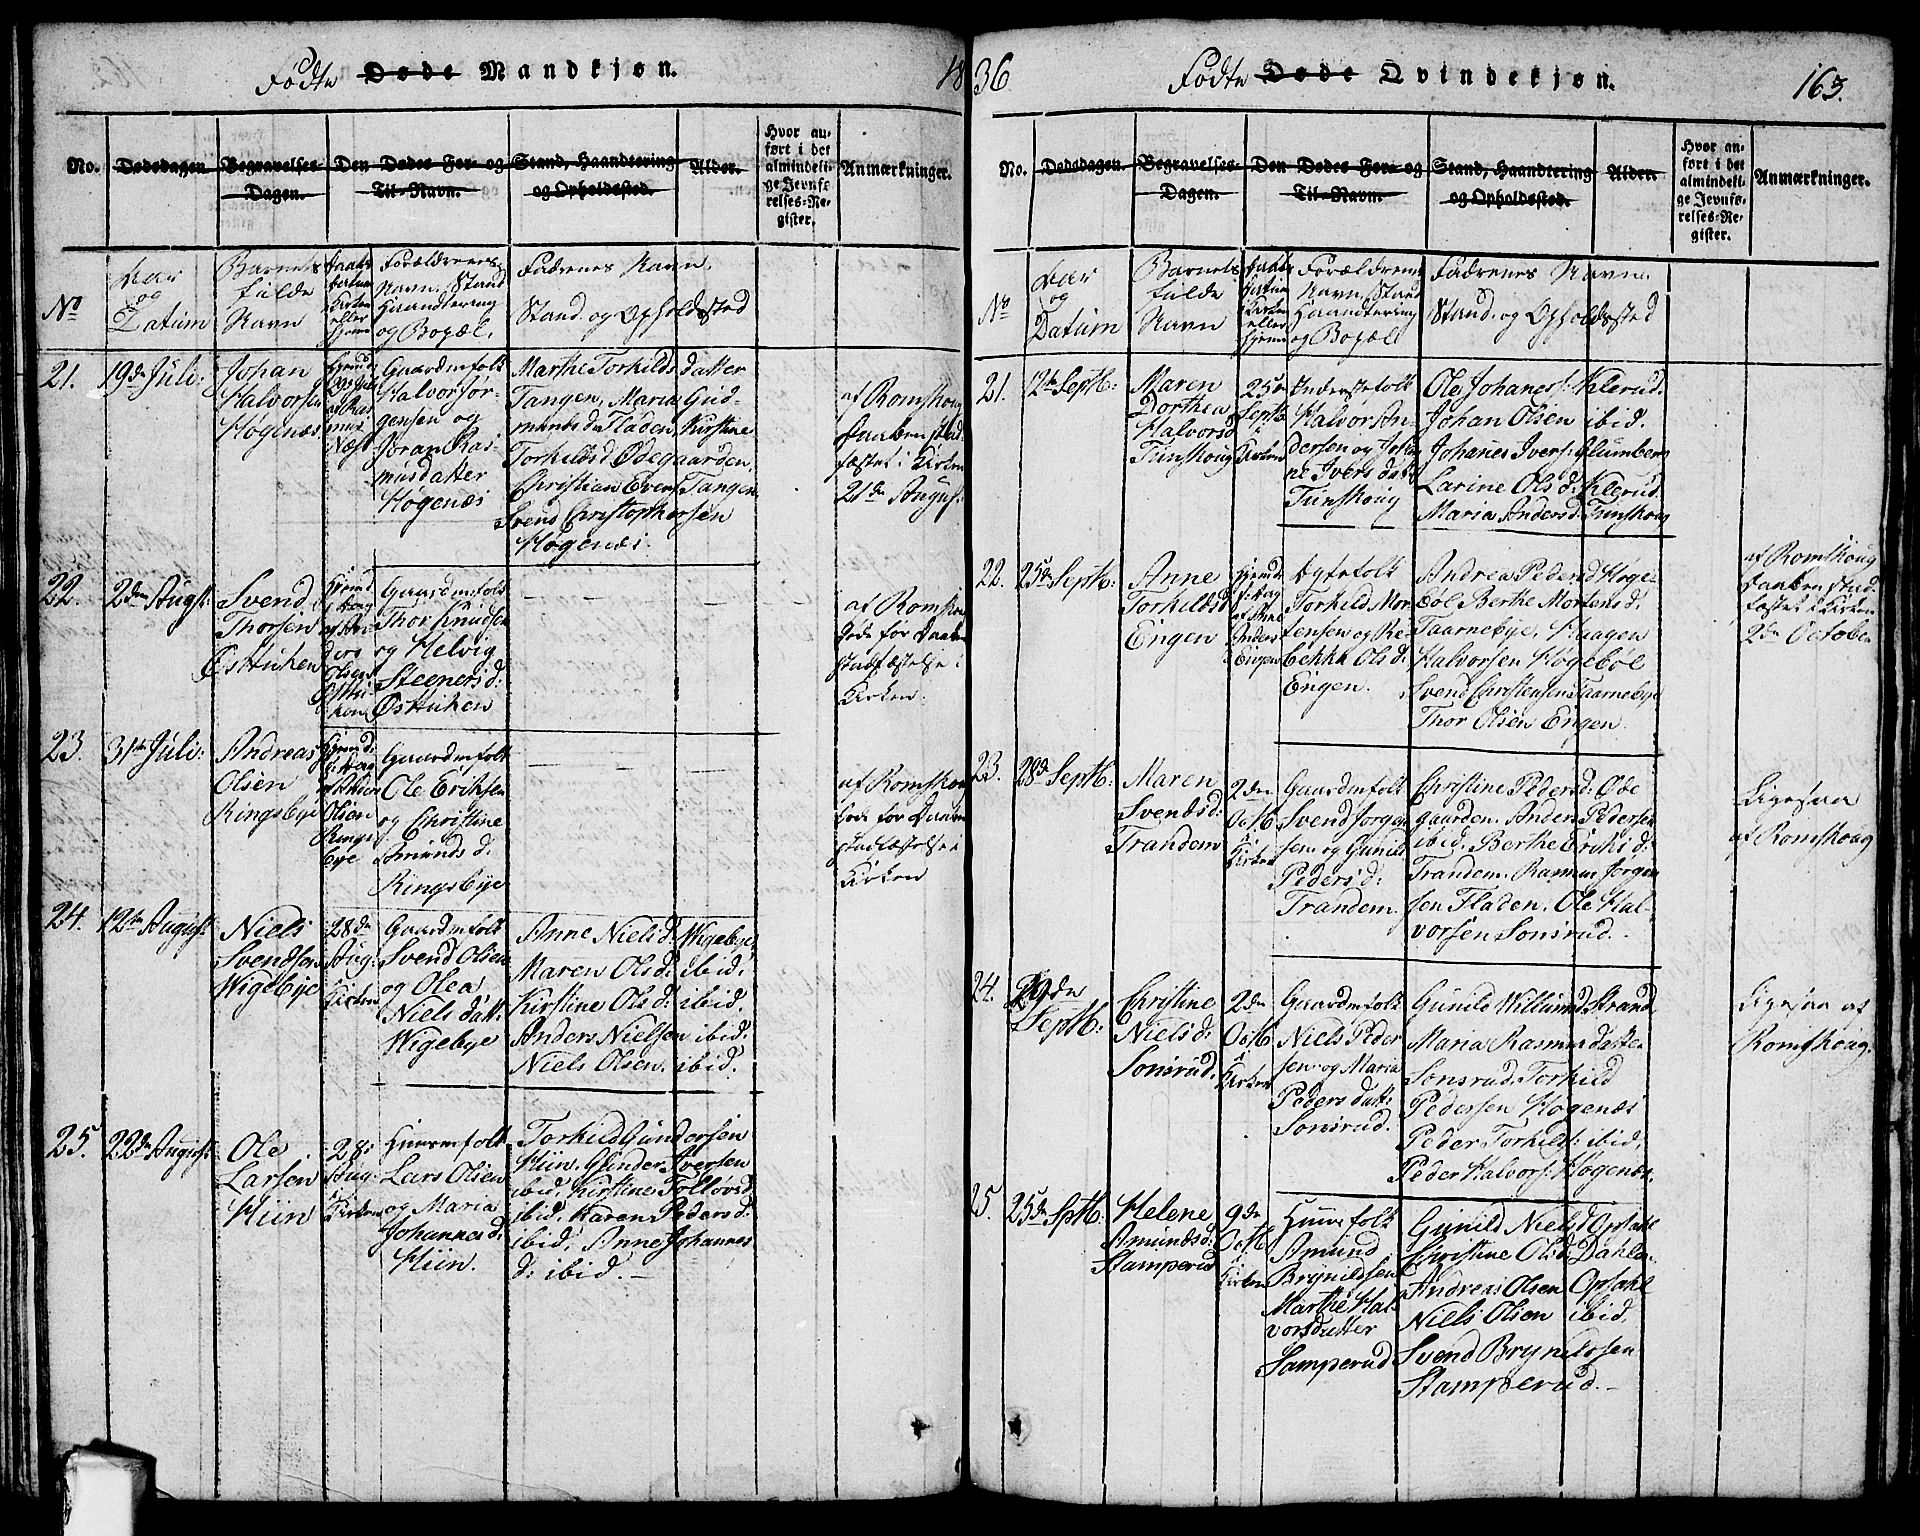 Fødte Døde Mandkjøn.
18
No.
Dødsdagen
Begravelses-
Dagen.
Den Dødes For- og
Til-Navn.
Stand, Haandtering
og Opholdssted.
Alder.
Hvor an-
ført i det
almindeli-
ge Jevnfø-
relses-Re-
gister.
Anmærkninger.
No
Aar
og
Datum
Barnets
fulde
Navn
Daabs
Datum
Kirken
eller
hjemme
Forældrenes
Navn, Stand
Haandtering
og Bopæl.
Faddrenes Navn.
Stand og Opholdssted
21.
19de Juli:
Johan
Halvorsen
Høgenæs
Gaardmfolk
Halvor Jør-
gensen og
Jøran Ras-
musdatter
Høgenæs
Marthe Torkilds datter
Tangen, Maria Gud-
mundsd. Fladen, Kirstine
Torkildsd. Ødegaarden,
Christian Evens Tangen
Svend Christophersen
Høgenæs.
af Romskoug
Daaben stad-
fæstet i Kirken
21de August
22.
2den Augst:
Svend
Thorsen
Østkuken
Gaardmfolk
Thor Knudsen
og Helvig
Steenersd:
af Romskoug
døde før Daabens
stadfæstelse i
Kirken.
23.
31te Juli:
Andreas
Olsen
Ringsbye
Gaardmfolk
Ole Eriksen
og Christine
Amunds d:
Ringsbye
af Romskoug
døde før Daabens
stadfæstelse i
Kirken
24.
12te August
Niels
Svendsen
Wigebye
28de
Aug:
i
Kirken
Gaardmfolk
Svend Olsen
og Olea
Niels datt:
Wigebye
Anne Nielsd: Wigebye,
Maren Olsd: ibid,
Kirstine Olsd: ibid.
Anders Nielsen ibid:
Niels Olsen. ibid.
25.
22de August
Ole
Larsen
Hiin
28:
Aug:
i
Kirken
Huusmfolk
Lars Olsen
og Maria
Johannesd:
Hiin.
Torkild Gundersen
Hiin, Gunder Iversen
ibid, Kirstine Tolløvsd
ibid, Karen Pedersd:
ibid, Anne Johannes
d: ibid.
36
Fødte Døde Qvindekjøn.
163.
No.
Dødsdagen.
Begravelses-
Dagen.
Den Dødes For- og
Til-Navn.
Stand, Haandtering
og Opholdssted.
Alder.
Hvor an-
ført i det
almindeli-
ge Jevnfø-
relses-Re-
gister.
Anmærkninger.
No
Aar
og
Datum
Barnets
fulde
Navn
Daabs
Datum
Kirken
eller
hjemme
Forældrenes
Navn, Stand
Haandtering
og Bopæl
Faddrenes Navn.
Stand og Opholdssted
21.
12te Septb:
Maren
Dorthea
Halvorsd
Tunskoug
25de
Septb
i
Kirken
Inderstfolk
Halvor An-
dersen og Johan-
ne Ivers datt:
Tunskoug
Ole Johanes: Klerud.
Johan Olsen ibid.
Johanes Ivers: Flumberg
Larine Olsd: Klerud.
Maria Andersd: Tunskoug
22.
25de Septb:
Anne
Torkildsd
Engen
Hjemd:
Ægtefolk
Torkild Mor-
tensen og Re-
bekka Olsd:
Engen.
Andrea Pedersd Høge-
bøl Berthe Mortensd:
Taarnebye, Haagen
Halvorsen Høgebøl
Svend Christensen Taarnebye
Thor Olsen Engen.
af Romskoug
Daaben stad-
fæstet i Kirken
2de October
23.
28de Septb:
Maren
Svendsd:
Trandem
2den
Octb
i
Kirken
Gaardmfolk
Svend Jørgen
sen og Gunild
Pedersd:
Trandem.
Christine Pedersd: Øde
gaarden. Anders Pedersen
ibid. Berthe Eriksd:
Trandem. Rasmus Jørgen
sen Fladen. Ole Hal-
vorsen Sonsrud.
Ligesaa
af Romskoug
24.
29de
Septb:
Christine
Nielsd:
Sonsrud.
2den
Octb
i
Kirken
Gaardmfolk
Niels Peder
sen og Maria
Peders datt:
Sonsrud.
Gunild Willumsd Strand
Maria Rasmusdatter
Sonsrud. Torkild
Pedersen Høgenæs
Peder Torkilds: ibid,
Peder Halvors: Høgenæs.
Ligesaa af
Romskoug.
25.
25de Septb:
Helene
Amundsd:
Stamperud
9de
Octb
i
Kirken
Huusfolk
Amund
Brynildsen
Marthe Hal-
vorsdatter
Samperud
Gunild Nielsd Opsahl
Christine Olsd: Dahlen
Andreas Olsen Opsahl
Niels Olsen ibid,
Svend Brynildsen
Stamperud.